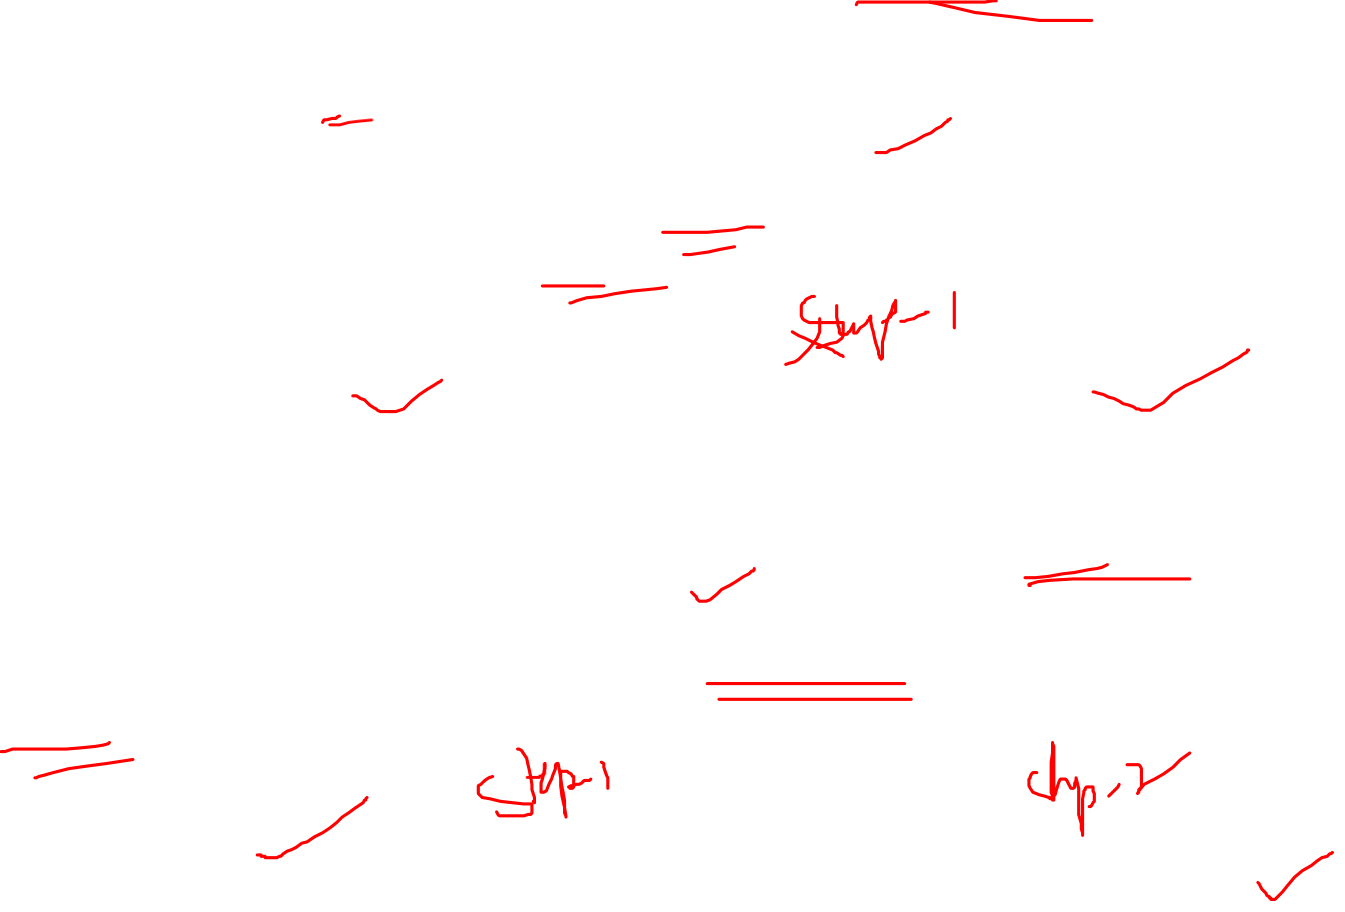 Step-1
Step-1
Step-2